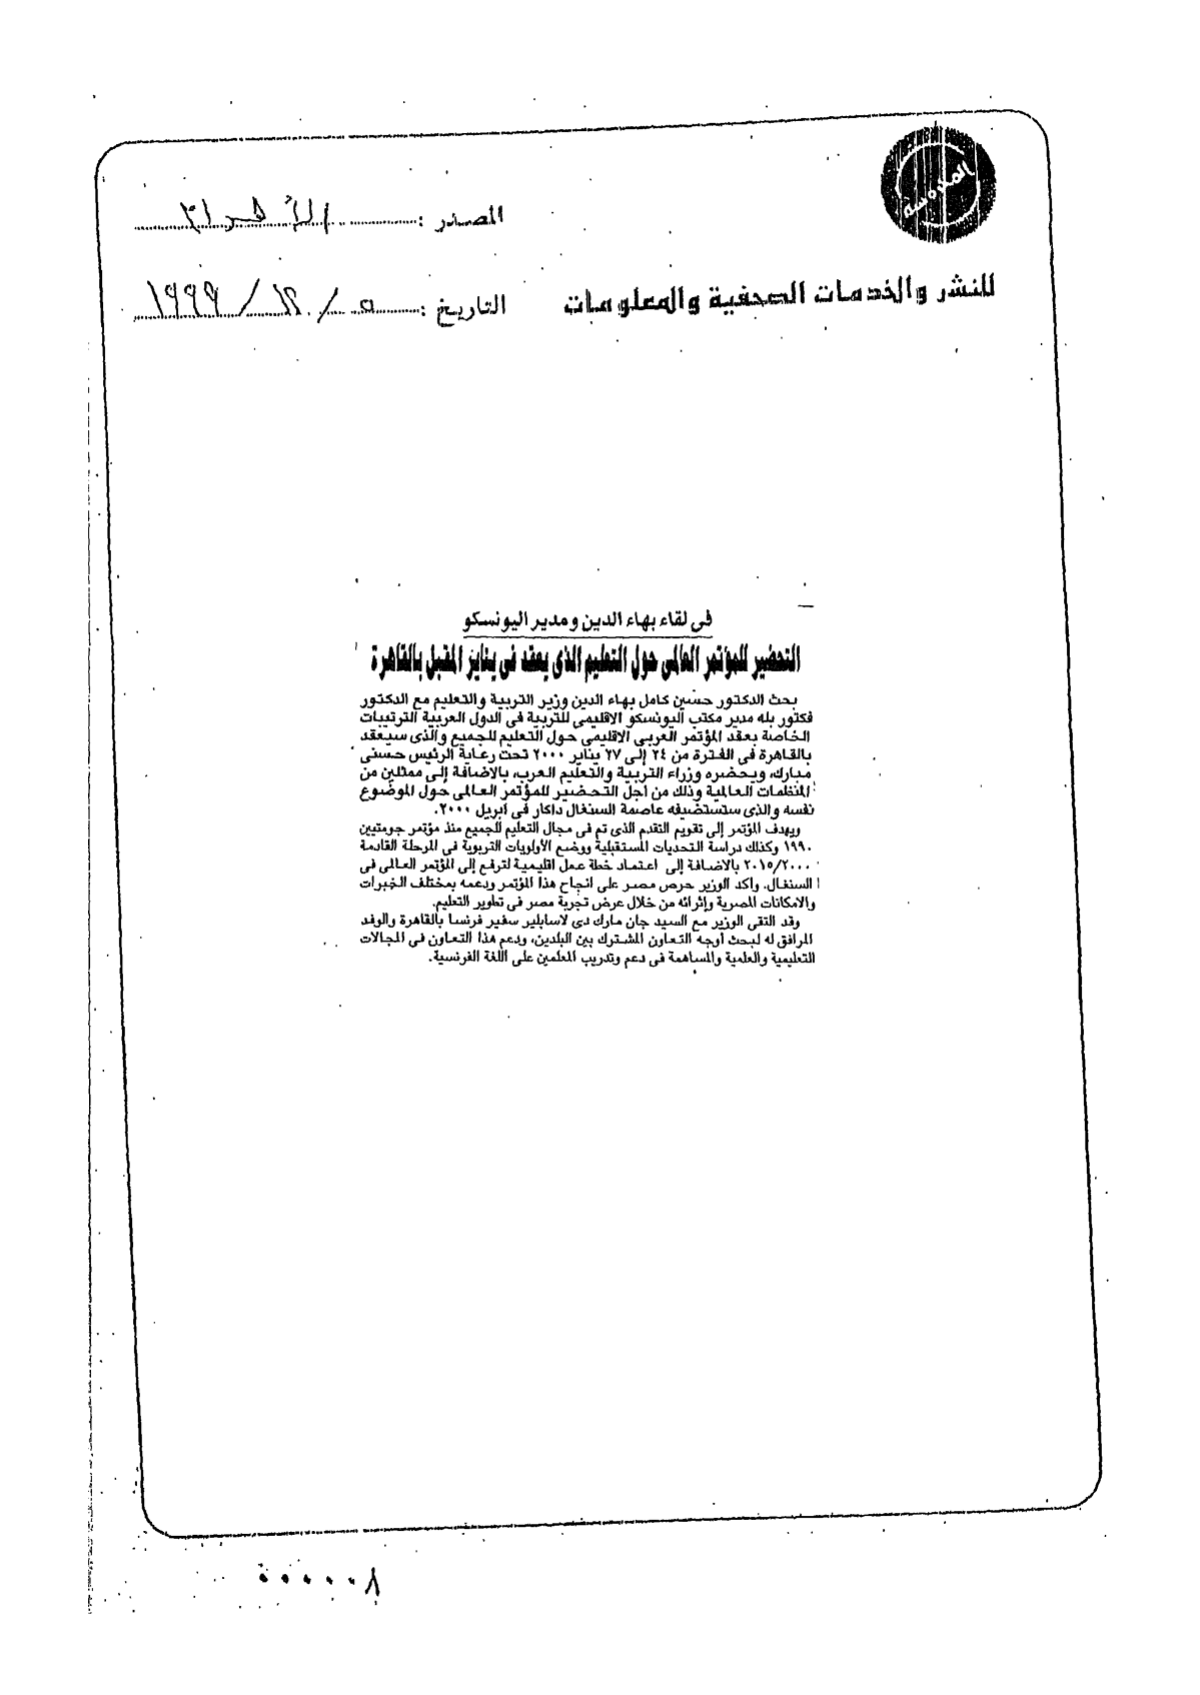 المصدر : الأهرام
للنشر والخدمات الصحفية والمعلومات
التاريخ : ٥ / ١٢ / ١٩٩٩
فى لقاء بهاء الدين ومدير اليونسكو
التحضير للمؤتمر العالمى حول التعليم الذى يعقد فى يناير المقبل بالقاهرة
بحث الدكتور حسين كامل بهاء الدين وزير التربية والتعليم مع الدكتور
فكتور بله مدير مكتب اليونسكو الاقليمى للتربية فى الدول العربية الترتيبات
الخاصة بعقد المؤتمر العربى الاقليمى حول التعليم للجميع والذى سيعقد
بالقاهرة فى الفترة من ٢٤ إلى ٢٧ يناير ٢٠٠٠ تحت رعاية الرئيس حسنى
مبارك، ويحضره وزراء التربية والتعليم العرب، بالاضافة إلى ممثلين من
المنظمات العالمية وذلك من أجل التحضير للمؤتمر العالمى حول الموضوع
نفسه والذى ستستضيفه عاصمة السنغال داكار فى ابريل ٢٠٠٠.
ويهدف المؤتمر إلى تقويم التقدم الذى تم فى مجال التعليم للجميع منذ مؤتمر جومتيين
١٩٩٠ وكذلك دراسة التحديات المستقبلية ووضع الأولويات التربوية فى المرحلة القادمة
٢٠١٥/٢٠٠٠ بالاضافة إلى اعتماد خطة عمل اقليمية لترفع إلى المؤتمر العالمى فى
السنغال. واكد الوزير حرص مصر على انجاح هذا المؤتمر ودعمه بمختلف الخبرات
والامكانات المصرية وإثرائه من خلال عرض تجربة مصر فى تطوير التعليم.
وقد التقى الوزير مع السيد جان مارك دى لاسابلير سفير فرنسا بالقاهرة والوفد
المرافق له لبحث أوجه التعاون المشترك بين البلدين، ودعم هذا التعاون فى المجالات
التعليمية والعلمية والمساهمة فى دعم وتدريب المعلمين على اللغة الفرنسية.